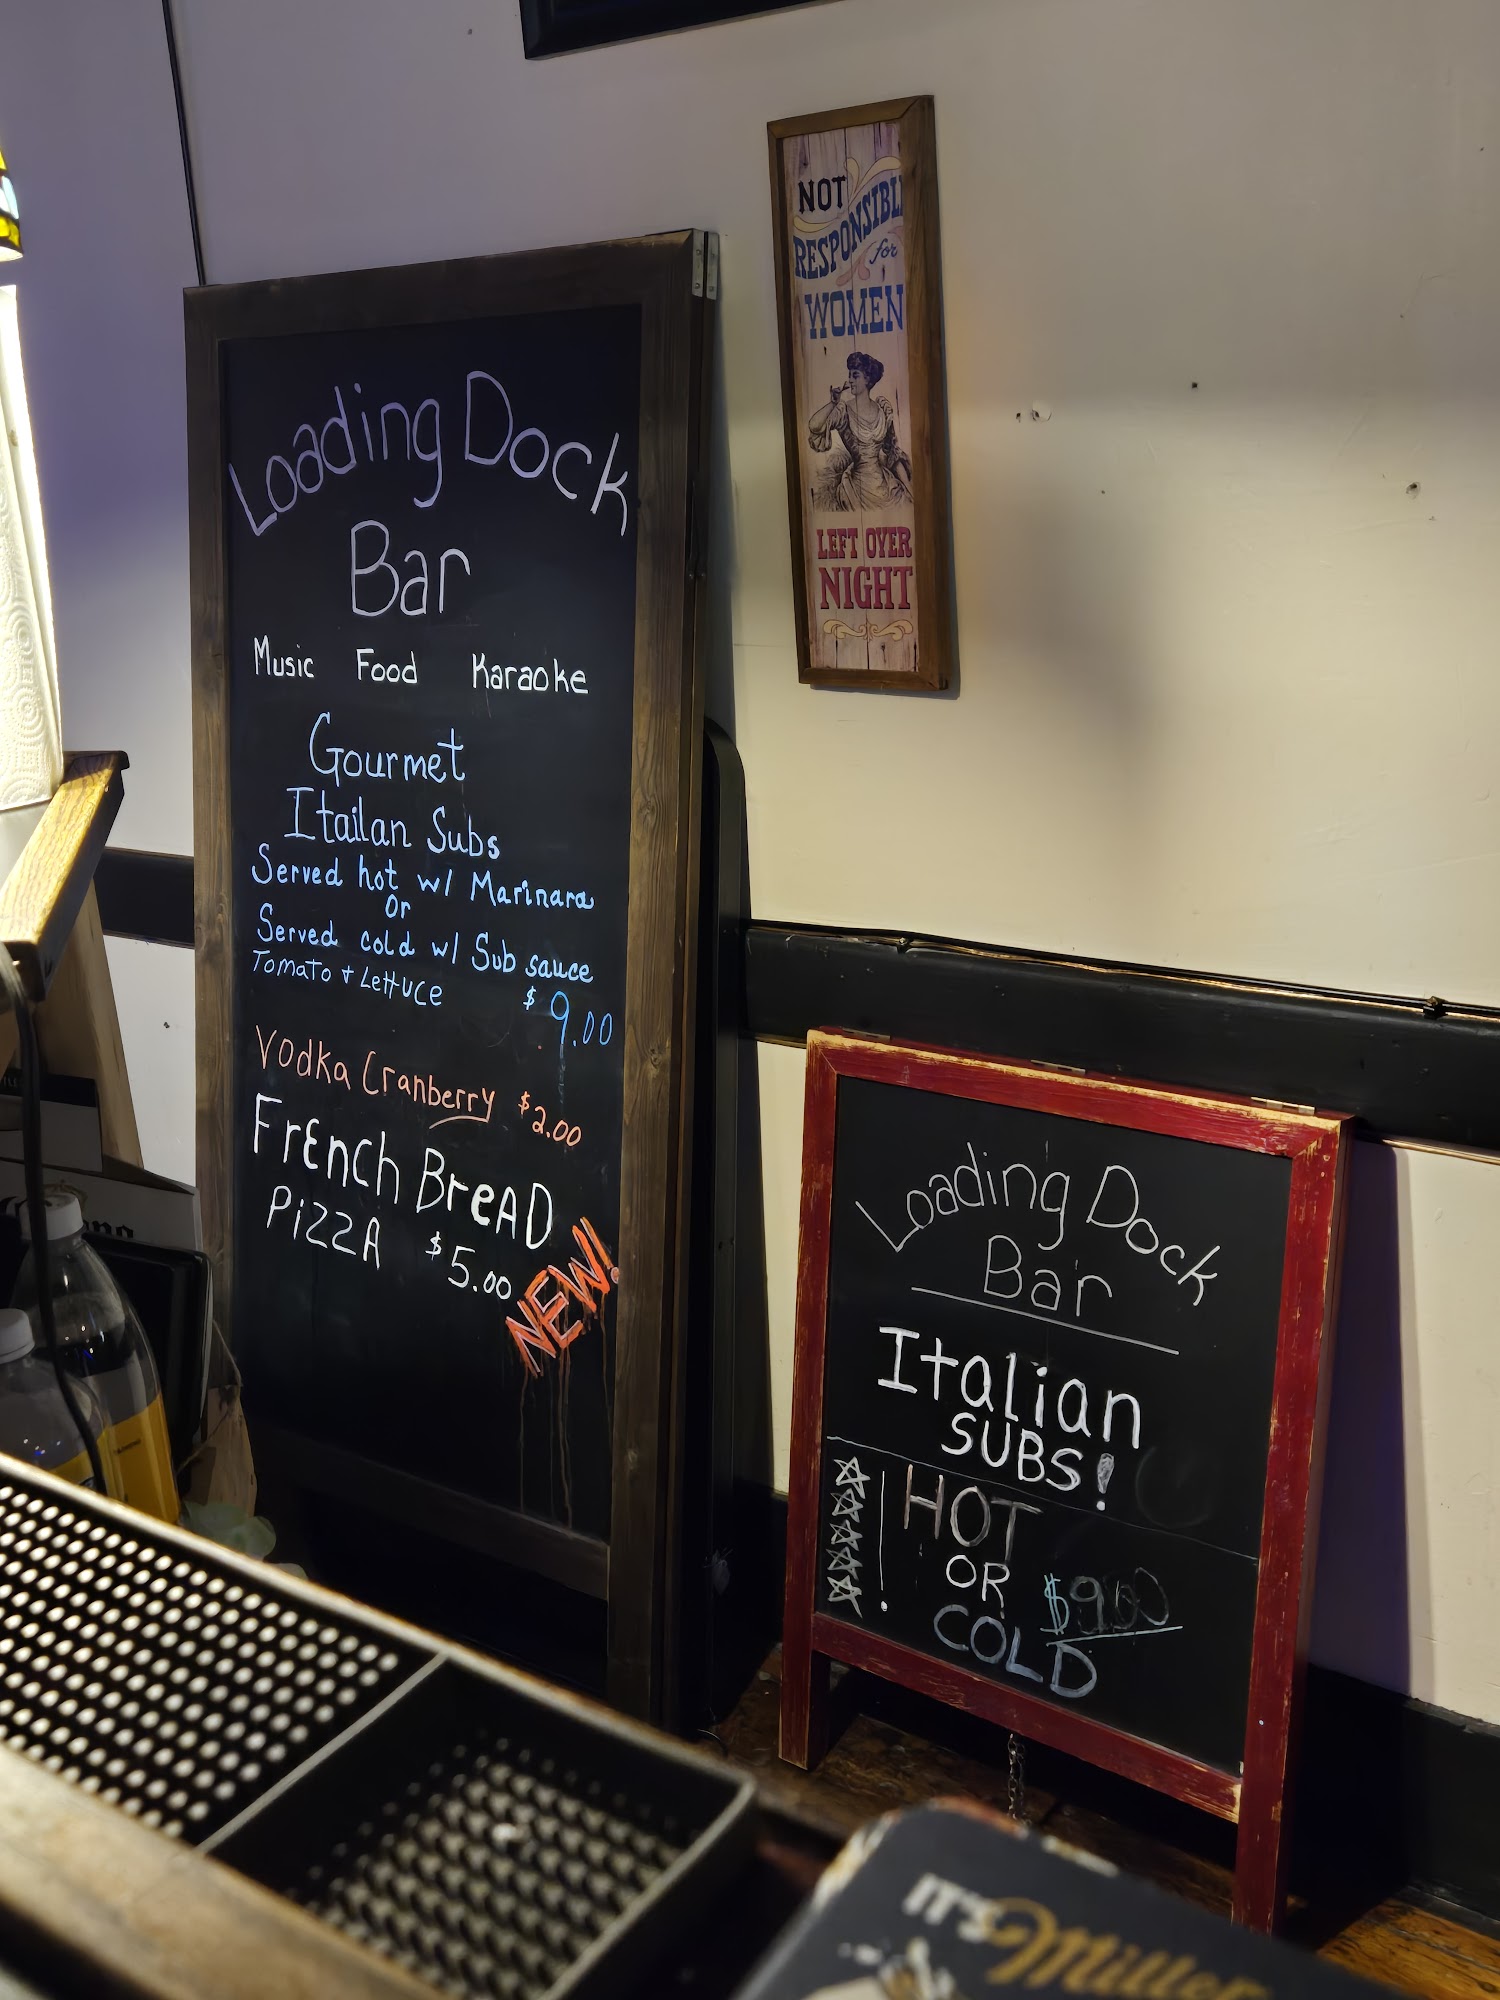 Loading Dock
Bar
Music Food Karaoke
Gourmet
Itailan Subs
Served hot w/ Marinara
or
Served cold w/ Sub sauce
Tomato + Lettuce $9.00
Vodka Cranberry $2.00
FrEnch BreAD
PiZZA $5.00
NEW!
NOT
RESPONSIBLE
for
WOMEN
LEFT OVER
NIGHT
Loading Dock
Bar
Italian
SUBS!
HOT
OR
COLD
$9.00
IT'S Miller